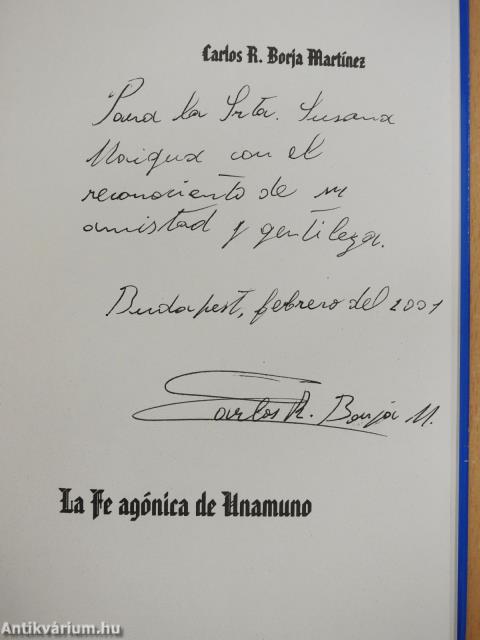 Carlos R. Borja Martínez
Para la Srta. Susana
con el
reconociento de su
amistad y gentileza.
Budapest, febrero del 2001
Carlos R. Borja M.
La Fe agónica de Unamuno
Antikvárium.hu